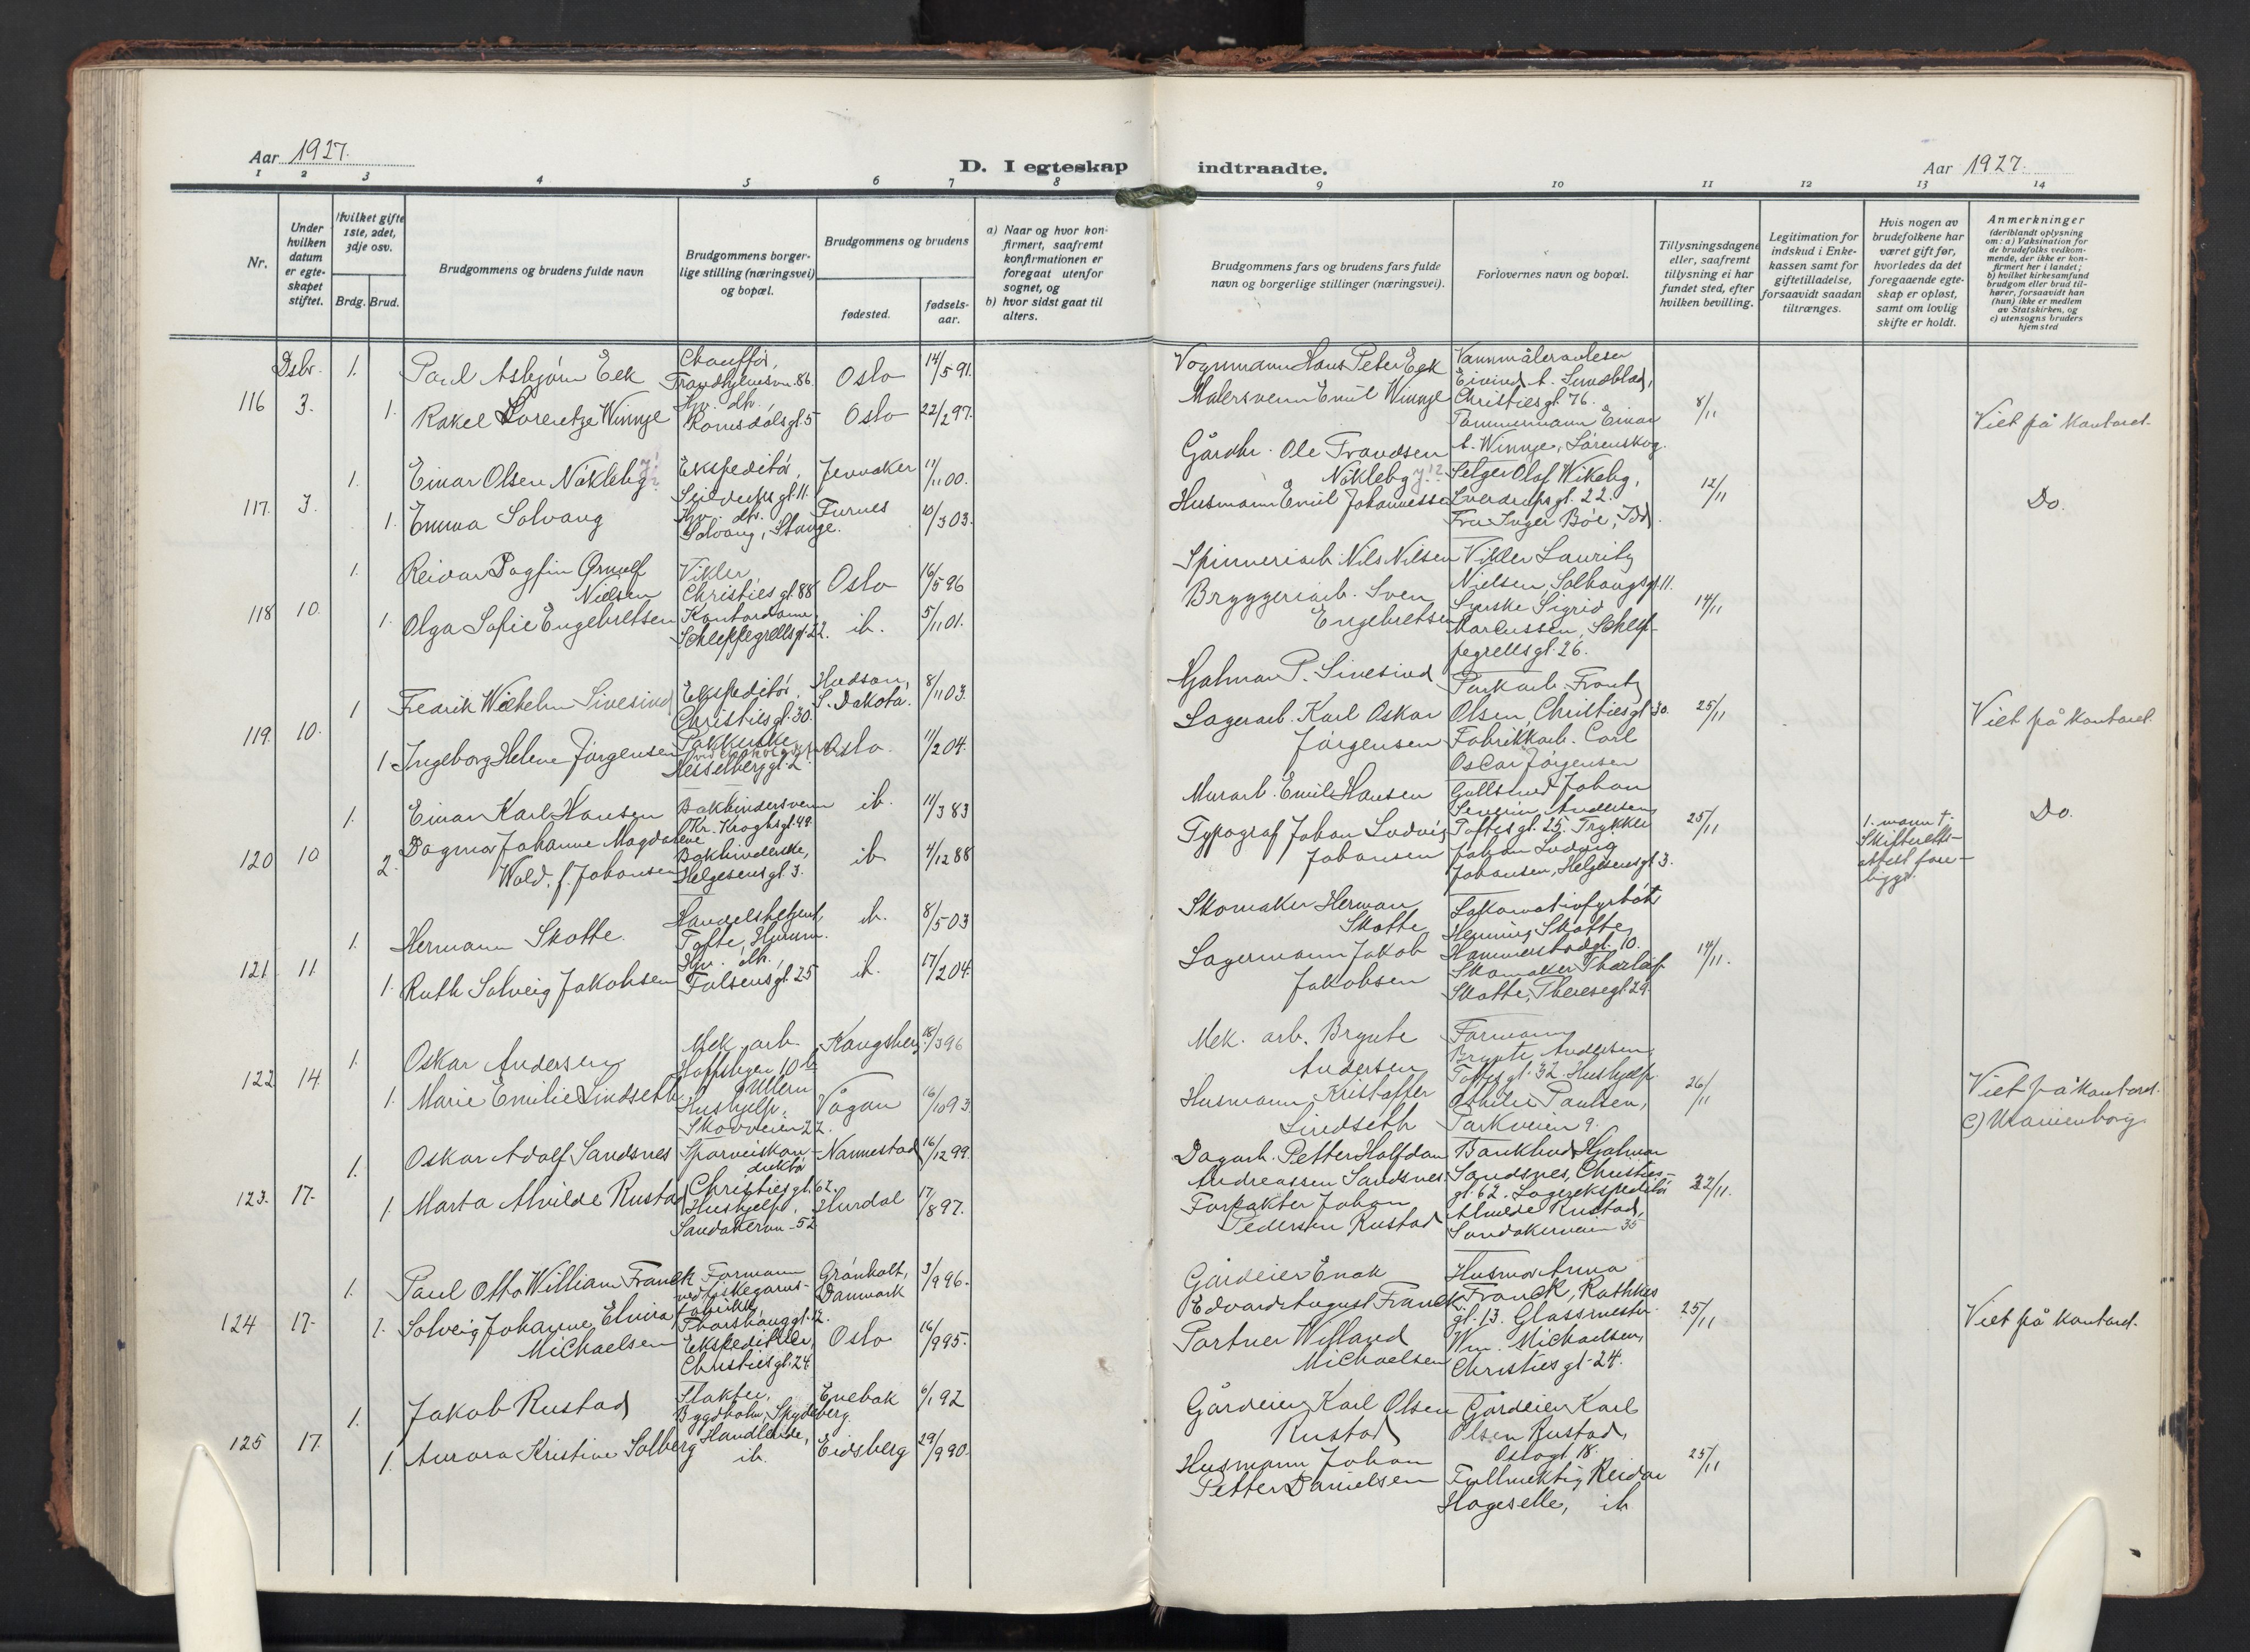 Aar 1927.
D. I egteskap indtraadte.
Aar 1927.
1 2 3 4 5 6 7 8 9 10 11 12 13 14
Nr.
Under
hvilken
datum
er egte-
skapet
stiftet.
Hvilket gifte
1ste, 2det,
3dje osv.
Brdg. Brud.
Brudgommens og brudens fulde navn
Brudgommens borger-
lige stilling (næringsvei)
og bopæl.
Brudgommens og brudens
fødested.
fødsels-
aar.
a) Naar og hvor kon-
firmert, saafremt
konfirmationen er
foregaat utenfor
sognet, og
b) hvor sidst gaat til
alters.
Brudgommens fars og brudens fars fulde
navn og borgerlige stillinger (næringsvei).
Forlovernes navn og bopæl.
Tillysningsdagene
eller, saafremt
tillysning ei har
fundet sted, efter
hvilken bevilling.
Legitimation for
indskud i Enke-
kassen samt for
giftetilladelse,
forsaavidt saadan
tiltrænges.
Hvis nogen av
brudefolkene har
været gift før,
hvorledes da det
foregaaende egte-
skap er opløst,
samt om lovlig
skifte er holdt.
Anmerkninger
(deriblandt oplysning
om: a) Vaksination for
de brudefolks vedkom-
mende, der ikke er kon-
firmert her i landet;
b) hvilket kirkesamfund
brudgom eller brud til-
hører, forsaavidt han
(hun) ikke er medlem
av Statskirken, og
c) utensogns bruders
hjemsted
Dsbr.
116 3.
1. Paul Asbjørn Eek
Chauffør,
Trondhjemsvn. 86.
Oslo
14/5 91.
1. Rakel Lorentze Winnje
Hv. dtr.
Romsdalsgt. 5
Oslo
22/2 97.
Vognmann Hans Peter Eek
Malersvenn Emil Winnje
Vannmåleravleser
Eivind A. Sundblad,
Christiesgt. 76.
Tømmermann Einar
A. Winnje, Lørenskog.
8/11
Viet på kontoret.
117. 3.
1. Einar Olsen Nökleby
Ekspeditör,
Seilduksgt. 11.
Jevnaker
11/11 00.
1. Emma Solvang
Hv. dtr.
Solvang, Stange.
Furnes
10/3 03.
Gårdbr. Ole Trondsen
Nökleby
Husmann Emil Johannessen
Selger Olaf Wikeby,
Sverdrupsgt. 22.
Fru Inger Bøe, Ibd.
12/11
Do.
118 10.
1. Reidar Dagfin Ørnulf
Nielsen
Vikler,
Christiesgt. 88
Oslo
16/5 96
1. Olga Sofie Engebretsen
Kontordame
Schleppegrellsgt. 22.
ib.
5/11 01.
Spinneriarb. Nils Nilsen
Bryggeriarb. Sven
Engebretsen
Vikler Lauritz
Nielsen, Solhaugsgt. 11.
Syerske Sigrid
Marcussen, Schlep-
pegrellsgt. 26.
14/11
119. 10.
1 Fredrik Wilhelm Sivesind
Ekspeditör,
Christiesgt. 30.
Hudson,
S. Dakota.
8/11 03.
1. Ingeborg Helene Jørgensen
Pakkerske
Hesselberggt. 2
Oslo.
11/2 04.
Hjalmar P. Sivesind
Lagerarb. Karl Oskar
Jørgensen
Parkarb. Frantz
Olsen, Christiesgt. 30.
Fabrikkarb. Carl
Oscar Jørgensen
25/11
Viet på kontoret.
120 10
1. Einar Karl Hansen
Bokbindersvenn
Kr. Kroghsgt. 49
ib.
11/3 83
2. Dagmar Johanne Magdalene
Wold, f. Johansen
Bokbinderske,
Helgesensgt. 3.
ib
4/12 88
Murarb. Emil Hansen
Typograf Johan Ludvig
Johansen
Gullsmed Johan
Severin Andersen
Toftesgt. 25. Trykker
Johan Ludvig
Johansen, Helgesensgt. 3.
25/11
1. mann †.
Skifteretts-
attest fore-
ligger.
Do.
121. 11.
1. Hermann Skotte.
Handelsbetjent
Tofte, Hurum.
ib.
8/5 03
1. Ruth Solveig Jakobsen
Hv. dtr.,
Falsensgt. 25
ib.
17/2 04.
Skomaker Herman
Skotte
Lagermann Jakob
Jakobsen
Lokomotivfyrbøt.
Henning Skotte,
Hammerstadgt. 10.
Skomaker Thorleif
Skotte, Theresegt. 29.
14/11.
122 14.
1. Oskar Andersen
Mek. arb.
Hoffsbyen 10 b
Ullern
Kongsberg
18/3 96
1. Marie Emilie Lindseth
Hushjelp,
Skovveien 22.
Vågan
16/10 93.
Mek. arb. Brynte
Andersen
Husmann Kristoffer
Lindseth
Formann
Brynte Andersen
Toftesgt. 32. Hushjelp.
Othilie Paulsen,
Parkveien 9.
26/11
Viet på kontoret.
c) Uranienborg
123. 17.
1. Oskar Adolf Sandsnes
Sporveiskon-
duktør
Christiesgt. 62.
Nannestad
16/12 99.
1. Marta Alvilde Rustad
Hushjelp,
Sandakervn. 52
Hurdal
17/8 97.
Dagarb. Petter Halfdan
Andreassen Sandsnes.
Forpakter Johan
Pedersen Rustad
Bankbud Hjalmar
Sandsnes, Christies-
gt. 62. Lagerekspeditör
Alvilde Rustad,
Sandakerveien 35
22/11.
124 17.
1. Paul Otto William Franck
Formann
ved fiskegarns-
fabrikk,
Thorshauggt. 12.
Grønholt,
Danmark
3/9 96.
1. Solveig Johanne Elvira
Michaelsen
Ekspeditrise,
Christiesgt. 24
Oslo
16/9 95.
Gårdeier Enok
Edvard August Franck
Portner Willand
Michaelsen
Husmor Anna
Franck, Rathkes
gt. 13. Glassmester
Wm. Michaelsen,
Christiesgt. 24.
25/11
Viet på kontoret.
125 17.
1. Jakob Rustad
Slakter,
Bygdholm, Spydeberg.
Enebak
6/1 92
1. Aurora Kristine Solberg
Handlende,
ib.
Eidsberg
29/9 90.
Gårdeier Karl Olsen
Rustad
Husmann Johan
Petter Danielsen
Gårdeier Karl
Olsen Rustad,
Oslogt. 18.
Fullmektig Reidar
Hageselle, ib
25/11